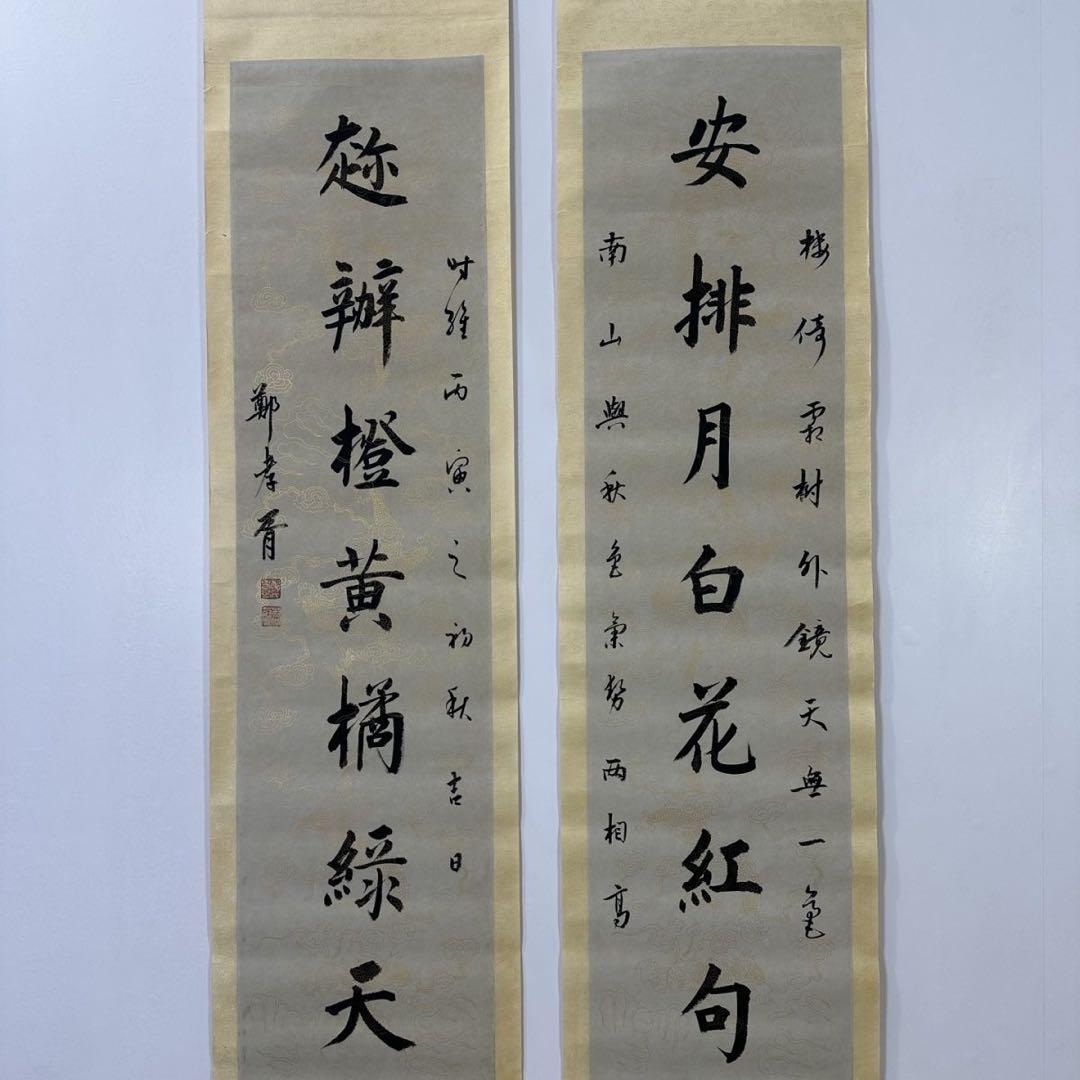 樓倚霜樹外鏡天無一毫
安排月白花紅句
南山與秋色氣勢兩相高
时維丙寅之初秋吉日
趂辦橙黃橘綠天
鄭孝胥